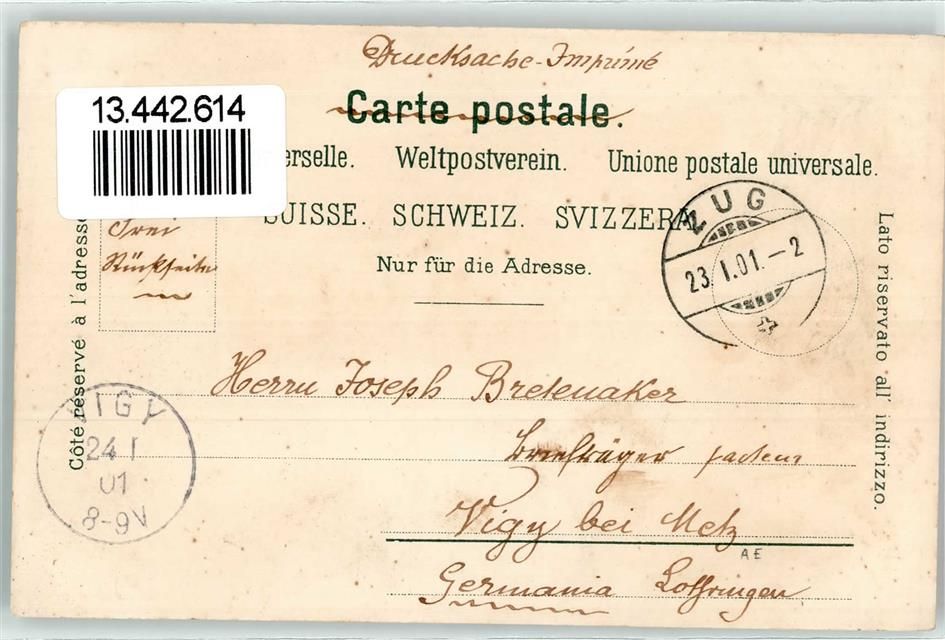 Drucksache-Imprimé
Carte postale.
13.442.614
erselle. Weltpostverein. Unione postale universale.
SUISSE. SCHWEIZ. SVIZZERA.
Nur für die Adresse.
frei
Rückseite
ZUG
23.I.01.-2
Côté réservé à l'adresse
Lato riservato all' indirizzo.
Herrn Joseph Bretenaker
Briefträger facteur
Vigy bei Metz
AE
Germania Lothringen
VIGY
24 I
01
8-9V